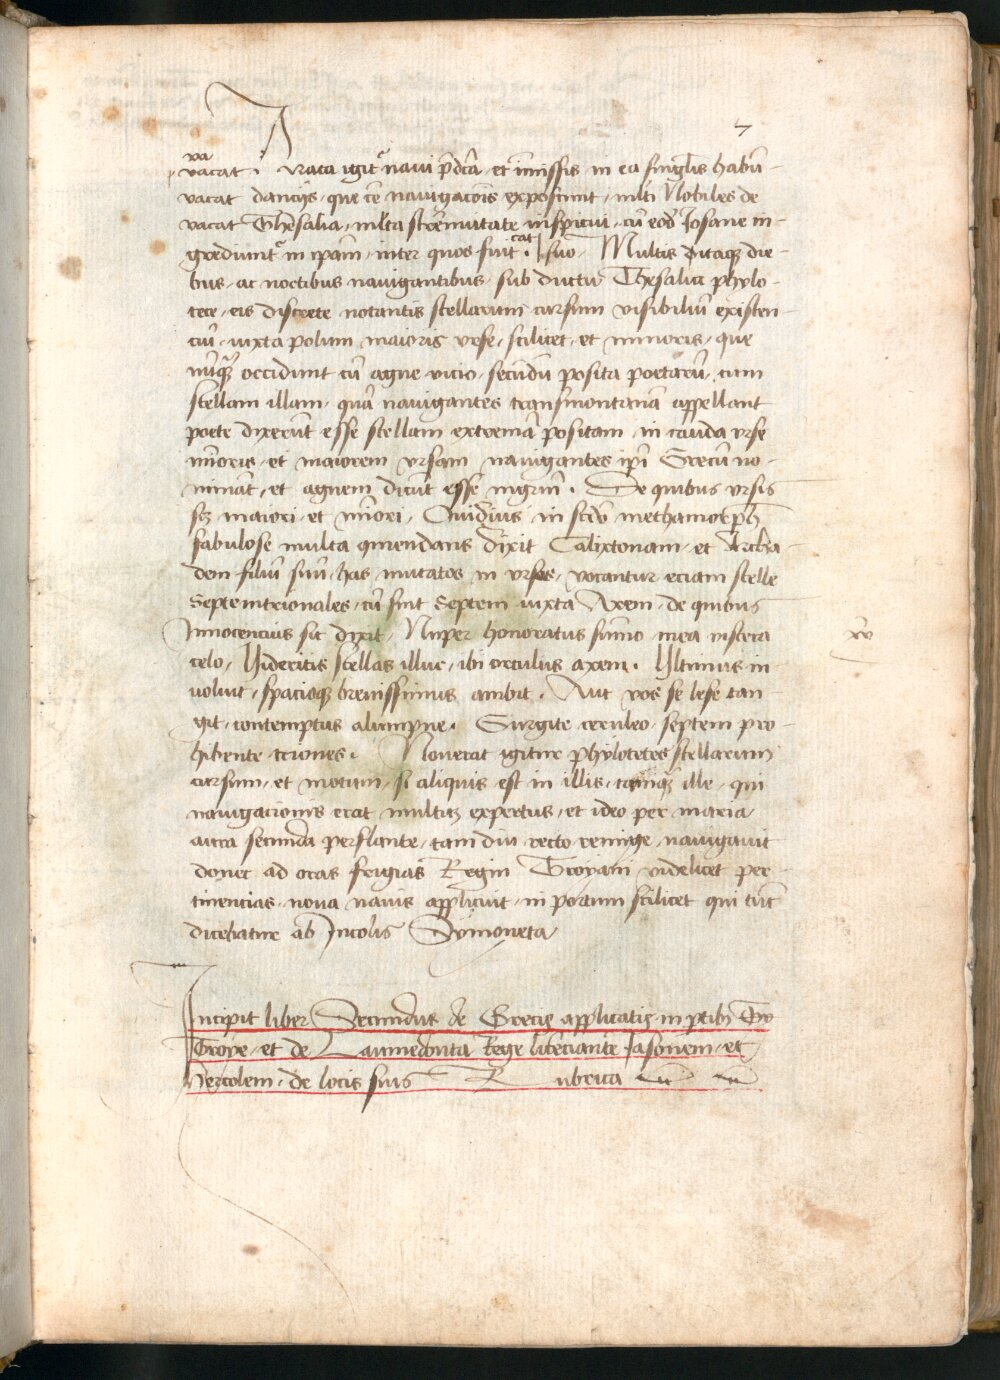 7
va
vacat . uata igit᷑ naui p̄dc̄a, et īmissis in ea singl̄is habū-
vacat dancijs, que tē nauigacōis exposcunt, ml̄ti Nobiles de
vacat Thesalia, ml̄ta strēnuitate inspicui, cū eod̄ Josane in-
grediunt᷑ in ip̄am, inter quos fuit. cat suo. Multis itaqꝫ die-
bus, ac noctibus nauigantibus, sub ductu Thesalici phylo-
tete, eis discrete notantis stellarum cursum visibiliū existen-
ciū, iuxta polum maioris vrse, scilicet, et minoris, que
nūqꝫ occidunt cū agne vicio, secūdū posita poetarū, cum
stellam illam, quā nauigantes transmontanā appellant
poete dixerūt esse stellam extremā positam, in cauda vrse
mīoris, et maiorem vrsam nauigantes ip̄i Grecū no-
mināt, et agnem dicūt esse mgrm̄. De quibus vrsis
sꝫ maiori et mīori, Ouidius in scd̄o methamorph̄
fabulose multa cōmendans dixit Calixtonam, et Archa-
dem filiū suū, has mutatos in vrsas, vocantur eciam stelle
Septemtrionales, cū sint Septem iuxta Axem, de quibus
Innocencius sic dixit, Nuper honoratus sūmo mea viscera
celo, Videritis stellas illuc, ibi circulus axem. Vltimus in
voluit, spacioqꝫ breuissimus ambit. Aut vos se lese tan-
git, contemptus alumpne. Gurgite ceruleo, septem pro-
hibente triones. Nouerat igitur phylotetes stellarum
cursum, et motum, si aliquis est in illis, tamqꝫ ille, qui
nauigacionis erat multū expertus, et ideo per maria
aura secunda perflante, tam diu recto remige, nauigauit
donec ad oras frigias Regni Troyani videlicet per-
tinencias, noua nauis applicuit, in portum scilicet qui tūc
dicebatur ab Incolis Symoneta
Incipit liber Secundus de Grecis applicatis in ptibꝫ Tro
Troye, et de Laumedonta Rege licenciante Jasonem, et
Hercolem, de locis suis Rubrica